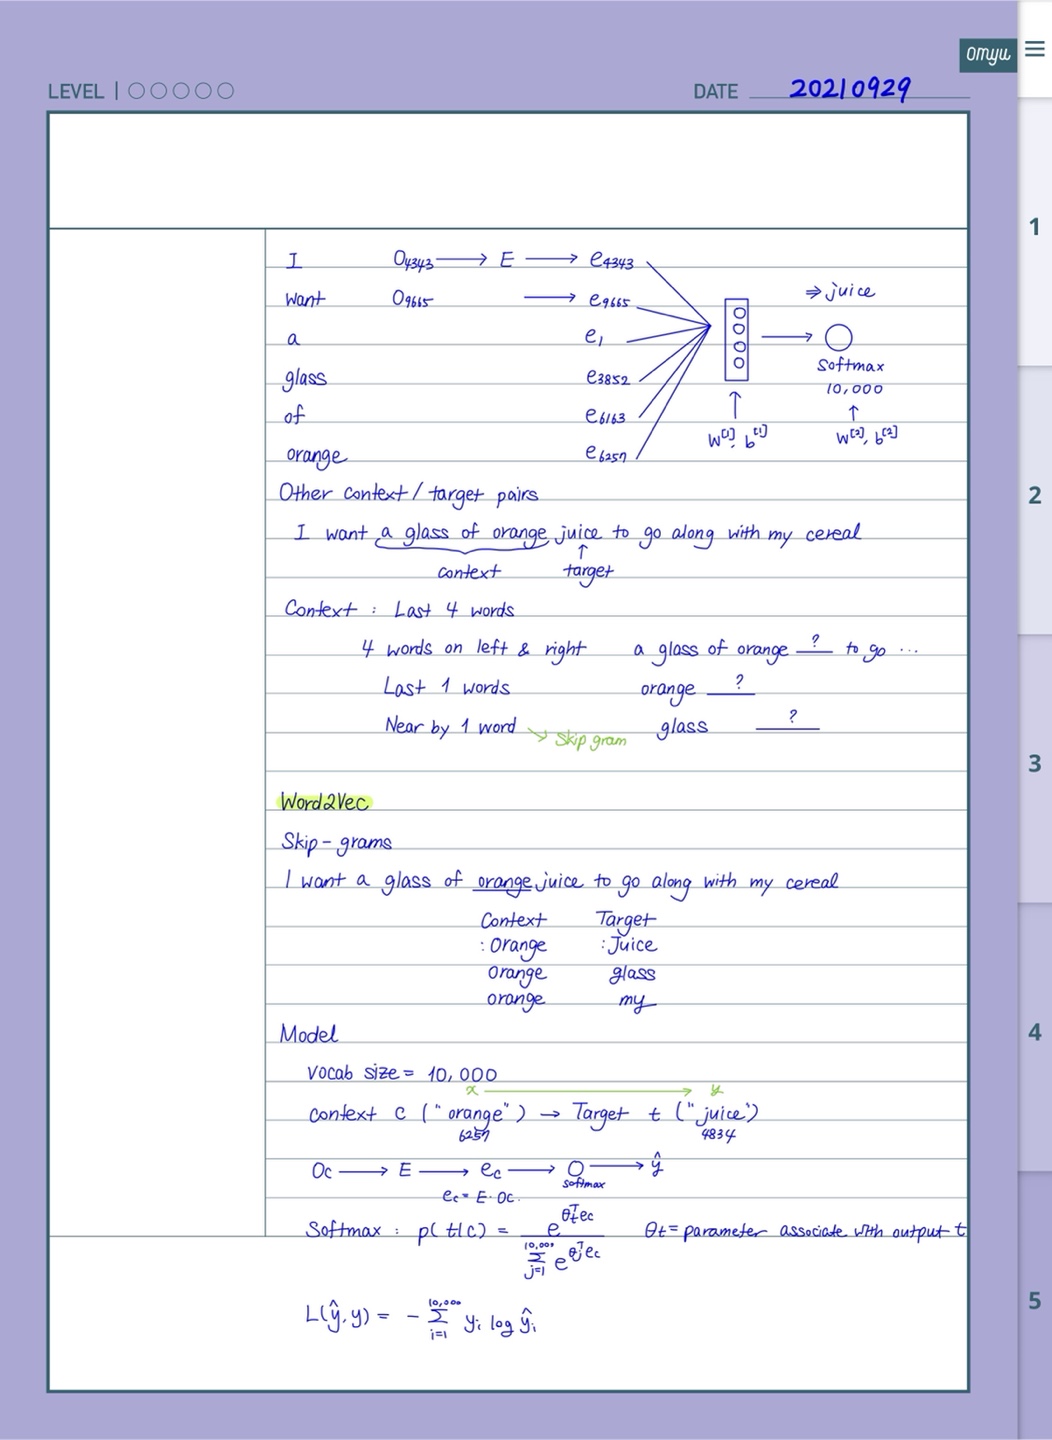 omyu
LEVEL | ○○○○○ DATE 20210929
I O4343 → E → e4343
want O9665 → e9665
⇒ juice
a e1
glass e3852
Softmax
10,000
of e6163
W[1], b[1] W[2], b[2]
orange e6257
Other context / target pairs
I want a glass of orange juice to go along with my cereal
context target
Context : Last 4 words
4 words on left & right a glass of orange ? to go ...
Last 1 words orange ?
Near by 1 word → Skip gram glass ?
Word2Vec
Skip-grams
I want a glass of orange juice to go along with my cereal
Context Target
: Orange : Juice
orange glass
orange my
Model
vocab size = 10,000
x → y
context c ("orange") → Target t ("juice")
6257 4834
Oc → E → ec → O → ŷ
softmax
ec = E · Oc.
Softmax : p(t|c) = e^(θt^T ec) / Σ_(j=1)^(10,000) e^(θj^T ec) θt = parameter associate with output t
L(ŷ, y) = - Σ_(i=1)^(10,000) yi log ŷi
1
2
3
4
5